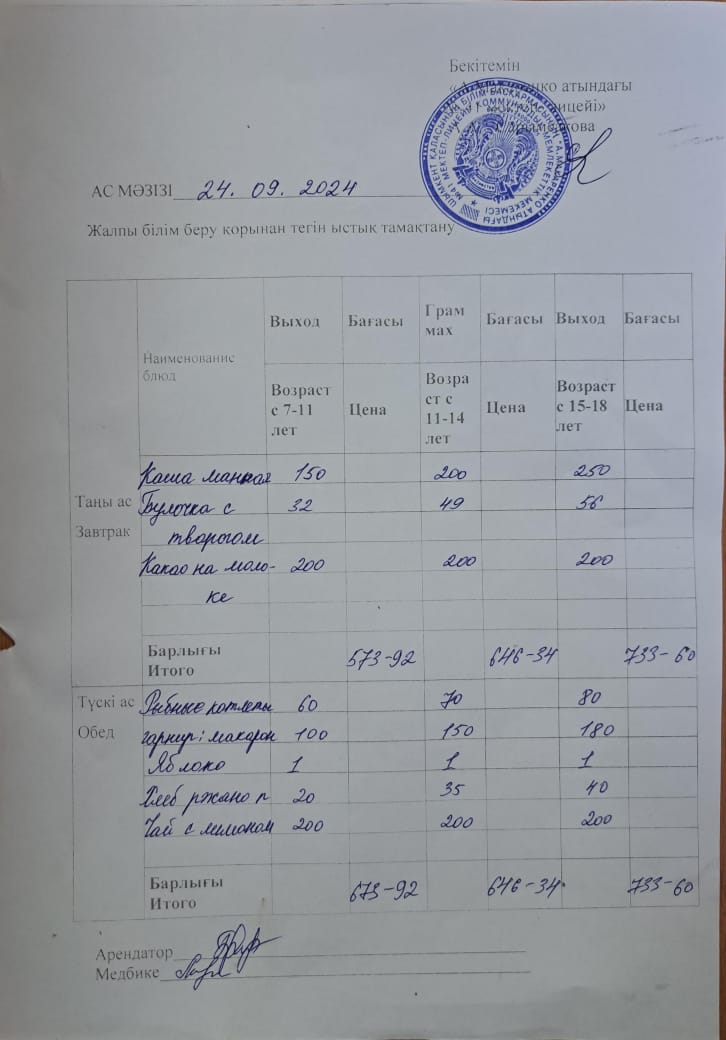 Бекітемін
атындағы
лицейі»
ШЫМКЕНТ ҚАЛАСЫНЫҢ БІЛІМ БАСҚАРМАСЫНЫҢ "А.МАКАРЕНКО АТЫНДАҒЫ №41 МЕКТЕП-ЛИЦЕЙ" КОММУНАЛДЫҚ МЕМЛЕКЕТТІК МЕКЕМЕСІ
АС МӘЗІЗІ 24. 09. 2024
Жалпы білім беру қорынан тегін ыстық тамақтану
Наименование блюд Выход Бағасы Грам мах Бағасы Выход Бағасы
Возраст с 7-11 лет Цена Возра ст с 11-14 лет Цена Возраст с 15-18 лет Цена
Таңы ас
Завтрак
Каша манная 150 200 250
Булочка с 32 49 56
творогом
Какао на моло- 200 200 200
ке
Барлығы
Итого 573-92 646-34 733-60
Түскі ас
Обед
Рыбные котлеты 60 70 80
гарнир: макарон 100 150 180
Яблоко 1 1 1
Хлеб ржано п 20 35 40
Чай с лимоном 200 200 200
Барлығы
Итого 673-92 646-34 733-60
Арендатор
Медбике